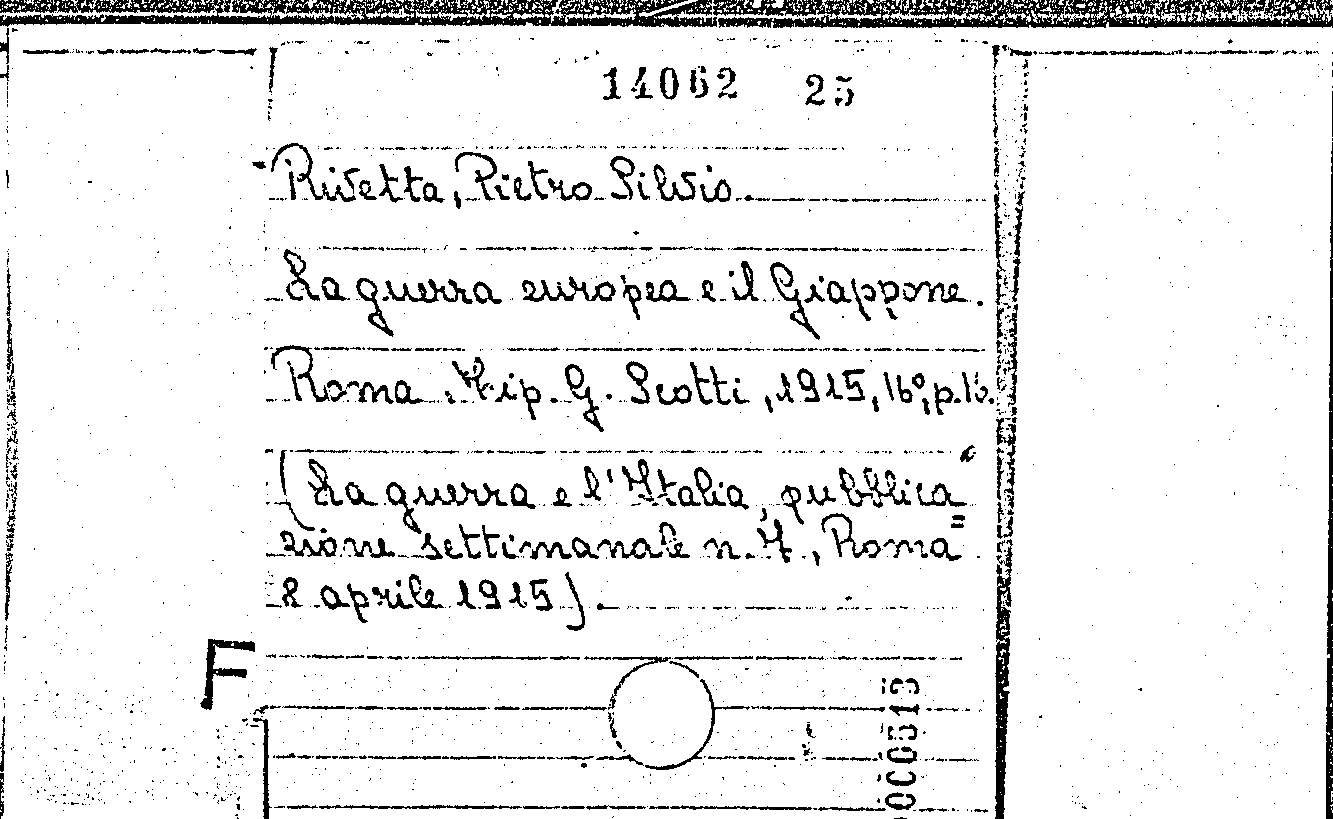 14062 25
Rivetta, Pietro Silvio.
La guerra europea e il Giappone.
Roma. Tip. G. Scotti, 1915, 16°, p.16.
(La guerra e l'Italia, pubblica=
zione settimanale n. 7, Roma
8 aprile 1915).
F
0000513